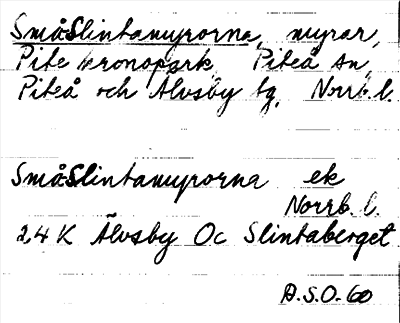 SmåSlintamyrorna, myrar,
Pite kronopark, Piteå sn,
Piteå och Älvsby tg, Norrb. l.
SmåSlintamyrorna ek
Norrb. l.
24 K Älvsby Oc Slintaberget
A.S.O.-60